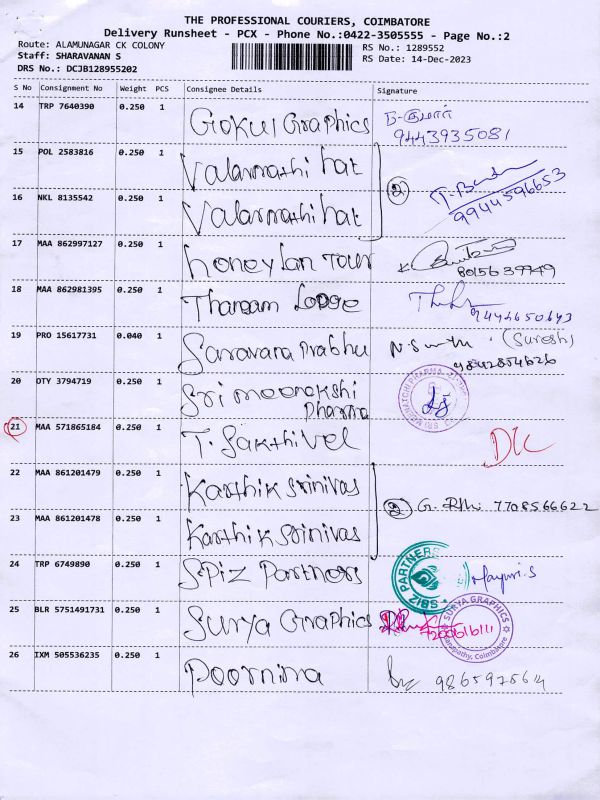 THE PROFESSIONAL COURIERS, COIMBATORE
Delivery Runsheet - PCX - Phone No.:0422-3505555 - Page No.:2
Route: ALAMUNAGAR CK COLONY RS No.: 1289552
Staff: SHARAVANAN S RS Date: 14-Dec-2023
DRS No.: DCJB128955202
S No Consignment No Weight PCS Consignee Details Signature
14 TRP 7640390 0.250 1 Gokul Graphics
9443935081
15 POL 2583816 0.250 1 Valarmathi hat
16 NKL 8135542 0.250 1 Valarmathi hat 2
9944596653
17 MAA 862997127 0.250 1 honey fan Tour
8015639949
18 MAA 862981395 0.250 1 Thangam Lodge
9444650643
19 PRO 15617731 0.040 1 Saravana Prabhu (Suresh)
9842854626
20 OTY 3794719 0.250 1 Sri meenakshi
Pharma
21 MAA 571865184 0.250 1 T. Sakthivel DLC
22 MAA 861201479 0.250 1 Karthik srinivas
2 G. 7708566622
23 MAA 861201478 0.250 1 Karthik srinivas
24 TRP 6749890 0.250 1 Spiz Partners PARTNERS SBIZ Mayuri.S
25 BLR 5751491731 0.250 1 Surya Graphics SURYA GRAPHICS
26 IXM 505536235 0.250 1 Poornima 9865975614